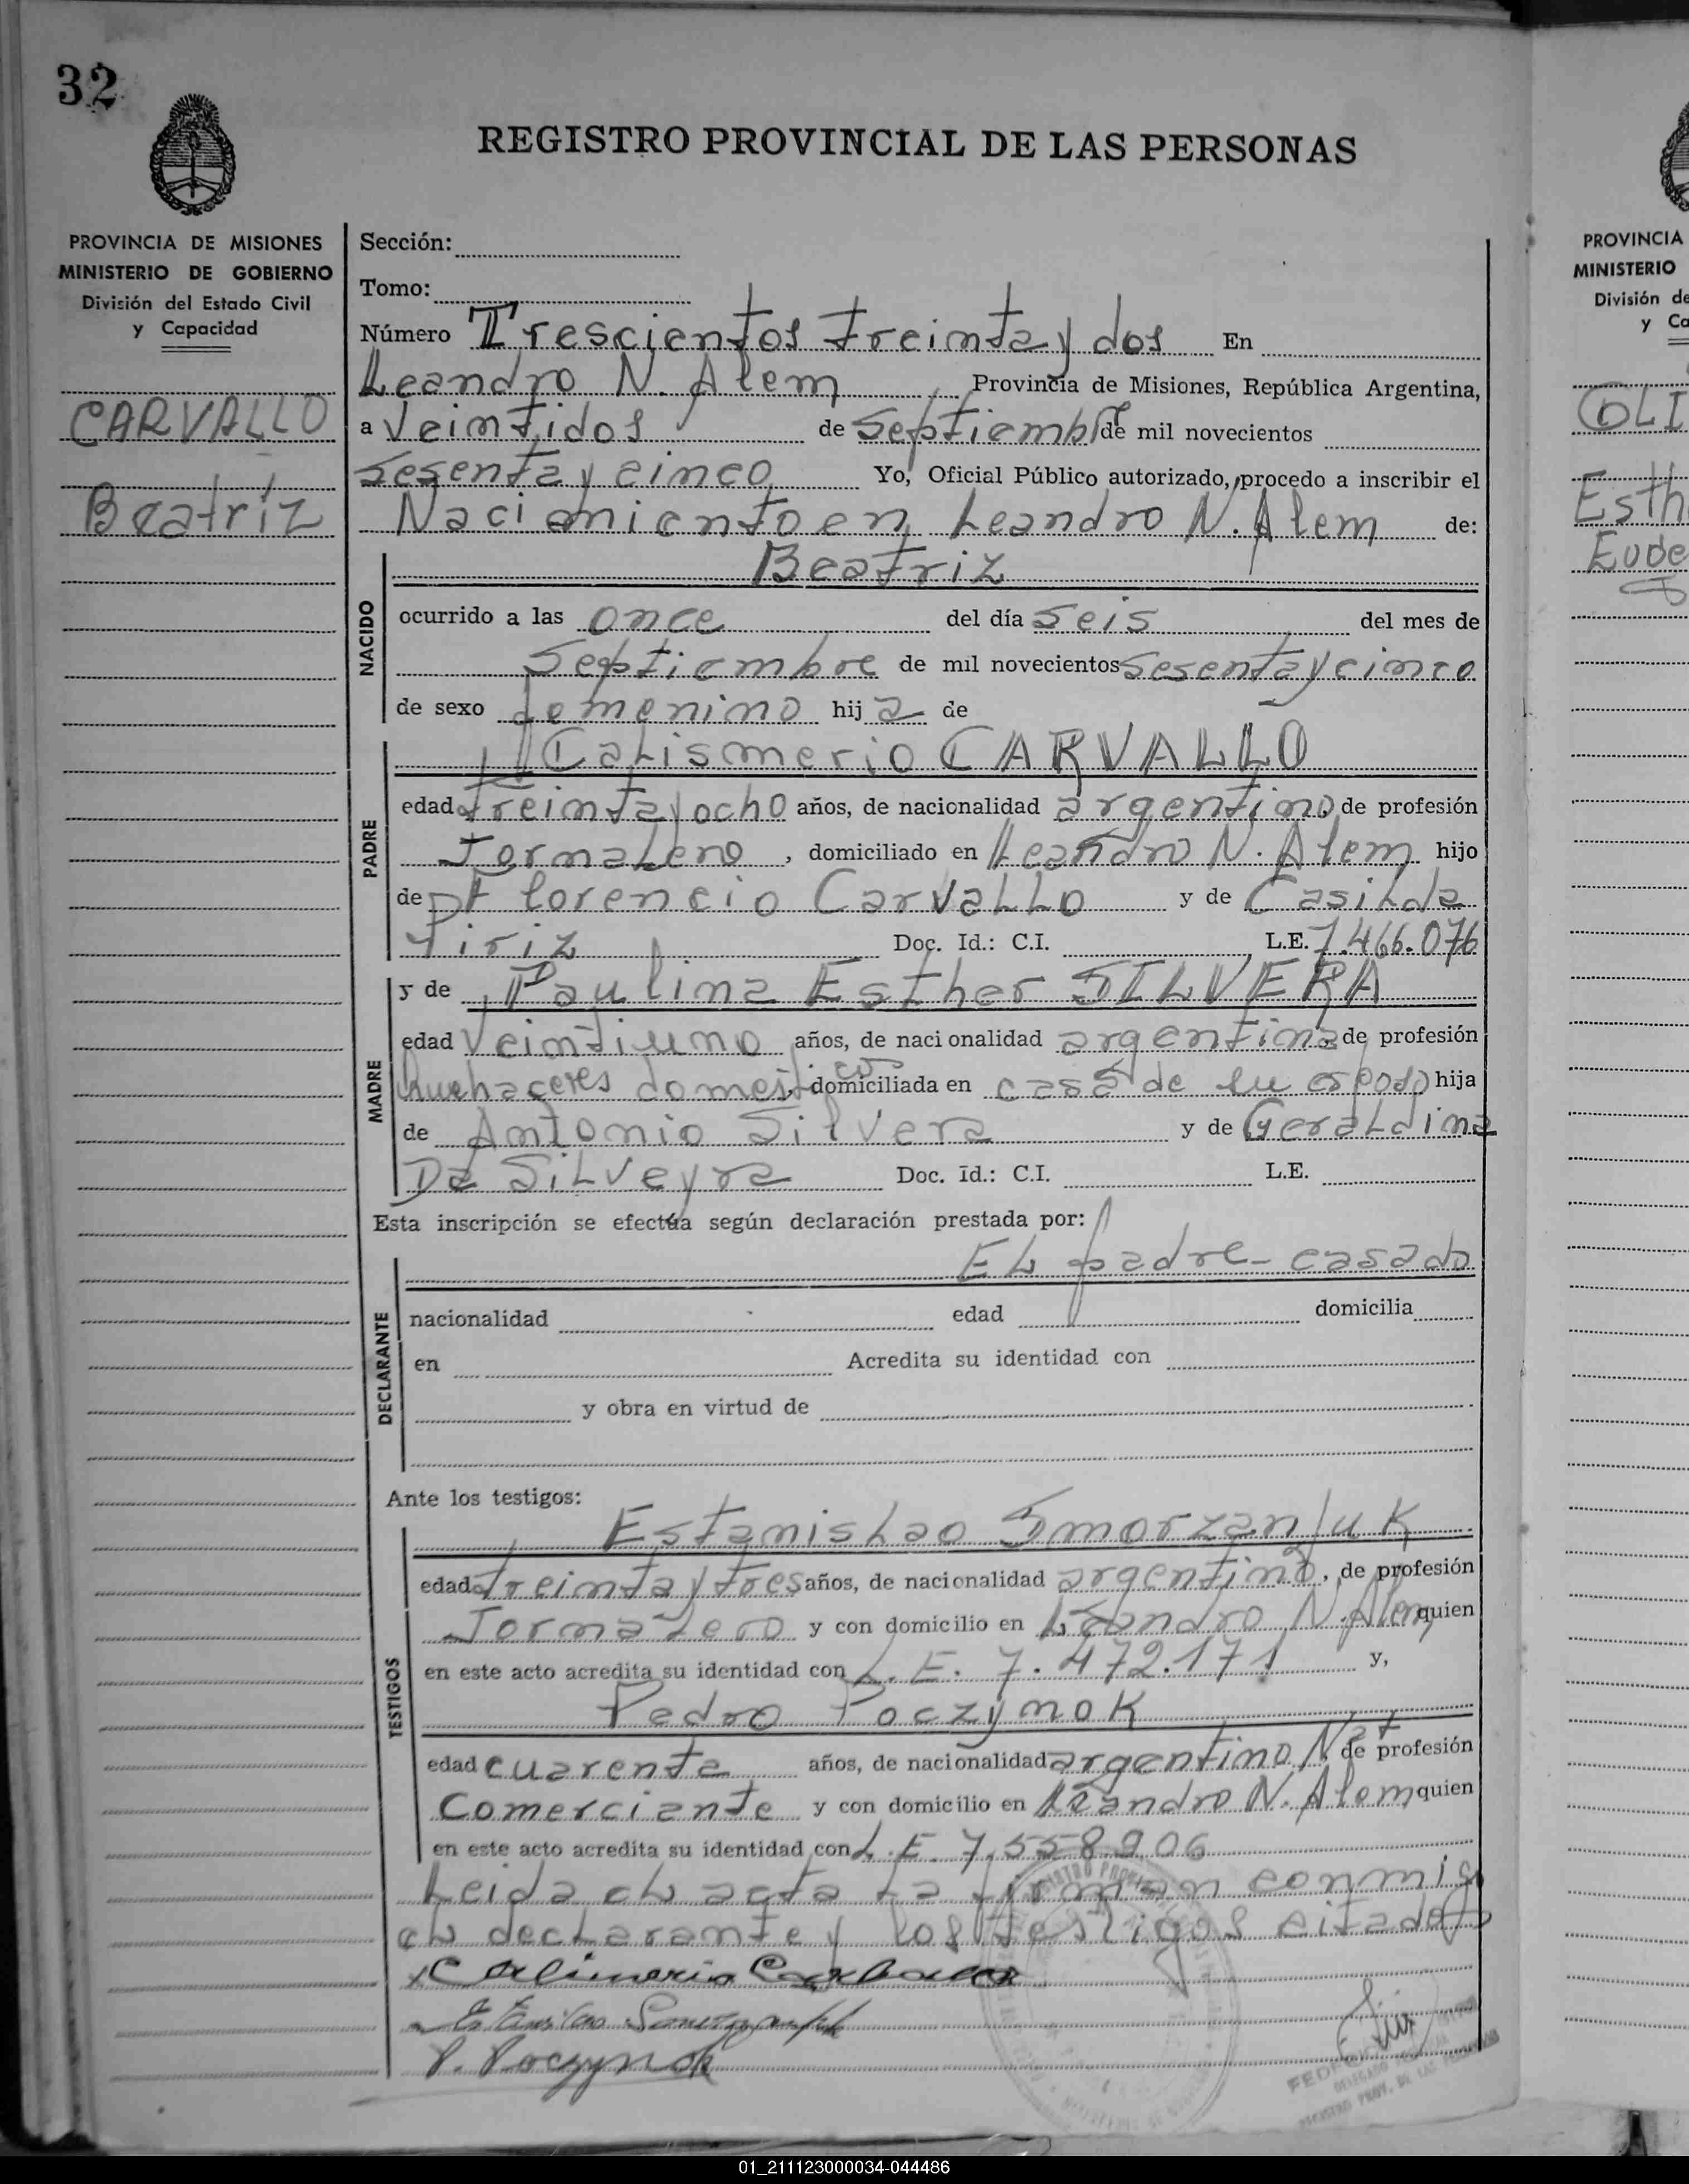 32
REGISTRO PROVINCIAL DE LAS PERSONAS
PROVINCIA DE MISIONES
MINISTERIO DE GOBIERNO
División del Estado Civil
y Capacidad
CARVALLO
Beatríz
Sección:
Tomo:
Número Trescientos treinta y dos En
Leandro N. Alem Provincia de Misiones, República Argentina,
a Veintidos de Septiembre de mil novecientos
Sesenta y cinco Yo, Oficial Público autorizado, procedo a inscribir el
Nacimiento en Leandro N. Alem de:
Beatriz
NACIDO
ocurrido a las once del día seis del mes de
Septiembre de mil novecientos Sesenta y cinco
de sexo femenino hija de
PADRE
Calismerio CARVALLO
edad treinta y ocho años, de nacionalidad argentino, de profesión
Jornalero, domiciliado en Leandro N. Alem hijo
de Florencio Carvallo y de Casilda
Piriz Doc. Id.: C.I. L.E. 7.466.076
MADRE
y de Paulina Esther SILVERA
edad Veintiuno años, de nacionalidad argentina de profesión
quehaceres domesticos, domiciliada en casa de su esposo hija
de Antonio Silvera y de Geraldina
Da Silveyra Doc. Id.: C.I. L.E.
Esta inscripción se efectúa según declaración prestada por:
DECLARANTE
El padre - casado
nacionalidad edad domicilia
en Acredita su identidad con
y obra en virtud de
Ante los testigos:
TESTIGOS
Estanislao Smorzaniuk
edad treinta y tres años, de nacionalidad argentino, de profesión
Jornalero y con domicilio en Leandro N. Alem quien
en este acto acredita su identidad con L.E. 7.472.171 y,
Pedro Poczynok
edad cuarenta años, de nacionalidad argentino Nat. de profesión
Comerciante y con domicilio en Leandro N. Alem quien
en este acto acredita su identidad con L.E. 7.558.906
Leida el acta la firman conmigo
el declarante y los testigos citados
P. Poczynok
PROVINCIA
MINISTERIO
División de
y Ca
COLI
Esth
Eude
01_211123000034-044486